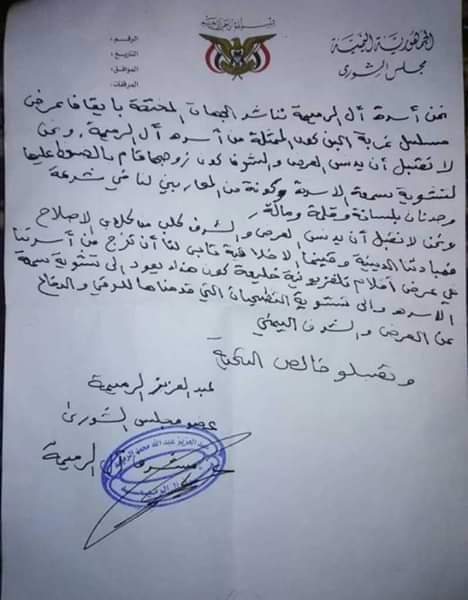 بسم الله الرحمن الرحيم
الجمهورية اليمنية
مجلس الشورى
الرقم :
التاريخ :
الموافق :
المرفقات :
نحن أسرة آل الرميمة نناشد الجهات المختصة بايقاف عرض
مسلسل غربة البن كون الممثلة من أسرة آل الرميمة ، ونحن
لا نقبل أن يدنس العرض والشرف كون زوجها قام بالضغط عليها
لتشويه سمعة الاسرة وكونة من المحاربين لنا في شرعة
وعدنان بلسانة وقلمة ومالة ،
ونحن لا نقبل أن يدنس العرض والشرف
الاصلاح
فمبادئنا الدينية وقيمنا الاخلاقية تابى لنا أن تخرج من أسرتنا
في عرض أفلام تلفزيونية خليعة كون هذا يعود الى تشويه سمعة
الاسره والى تشويه التضحيات التي قدمناها للدين والدفاع
عن العرض والشرف اليمني
وتقبلو خالص التحية
عبد العزيز الرميمة
عضو مجلس الشورى
الرميمة